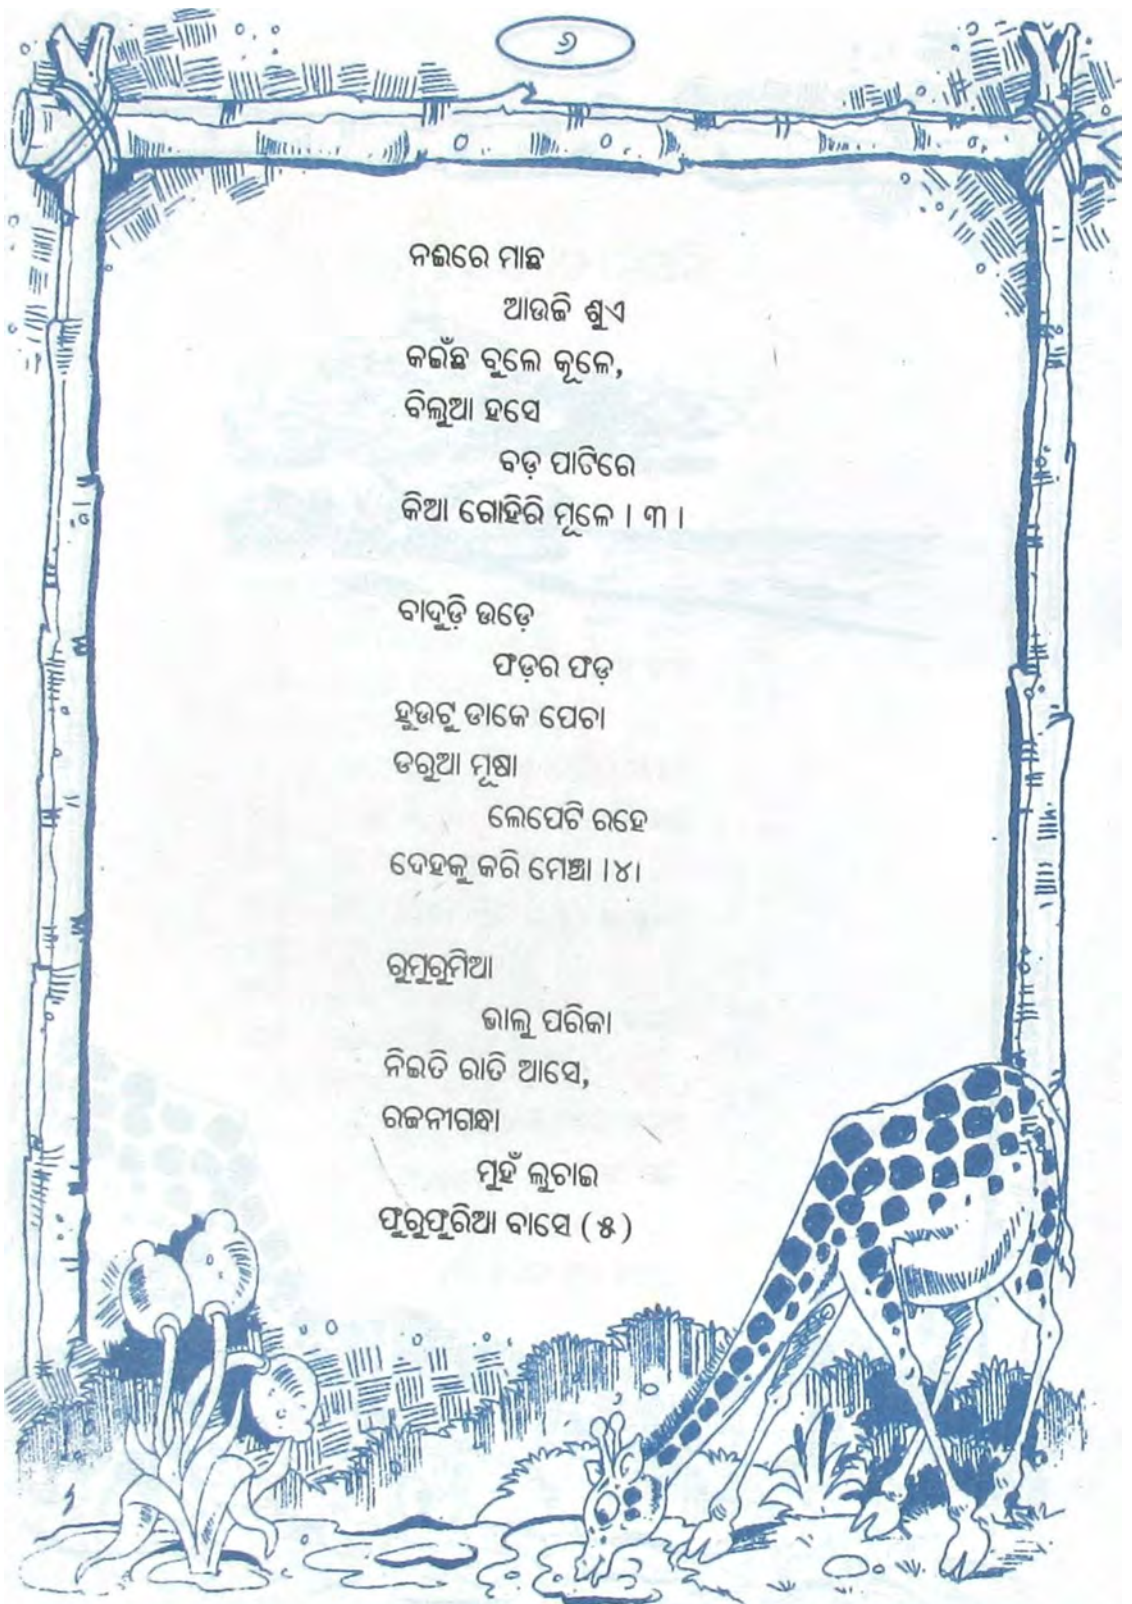 ୬
ନଈରେ ମାଛ
ଆଉଜି ଶୁଏ
କଇଁଛ ବୁଲେ କୂଳେ,
ବିଲୁଆ ହସେ
ବଡ଼ ପାଟିରେ
କିଆ ଗୋହିରି ମୂଳେ । ୩ ।
ବାଦୁଡ଼ି ଉଡ଼େ
ଫଡ଼ର ଫଡ଼
ହୁଉଟୁ ଡାକେ ପେଚା
ଡରୁଆ ମୂଷା
ଲେପେଟି ରହେ
ଦେହକୁ କରି ମେଞ୍ଚା ।୪।
ରୁମୁରୁମିଆ
ଭାଲୁ ପରିକା
ନିଇତି ରାତି ଆସେ,
ରଜନୀଗନ୍ଧା
ମୁହଁ ଲୁଚାଇ
ଫୁରୁଫୁରିଆ ବାସେ (୫)